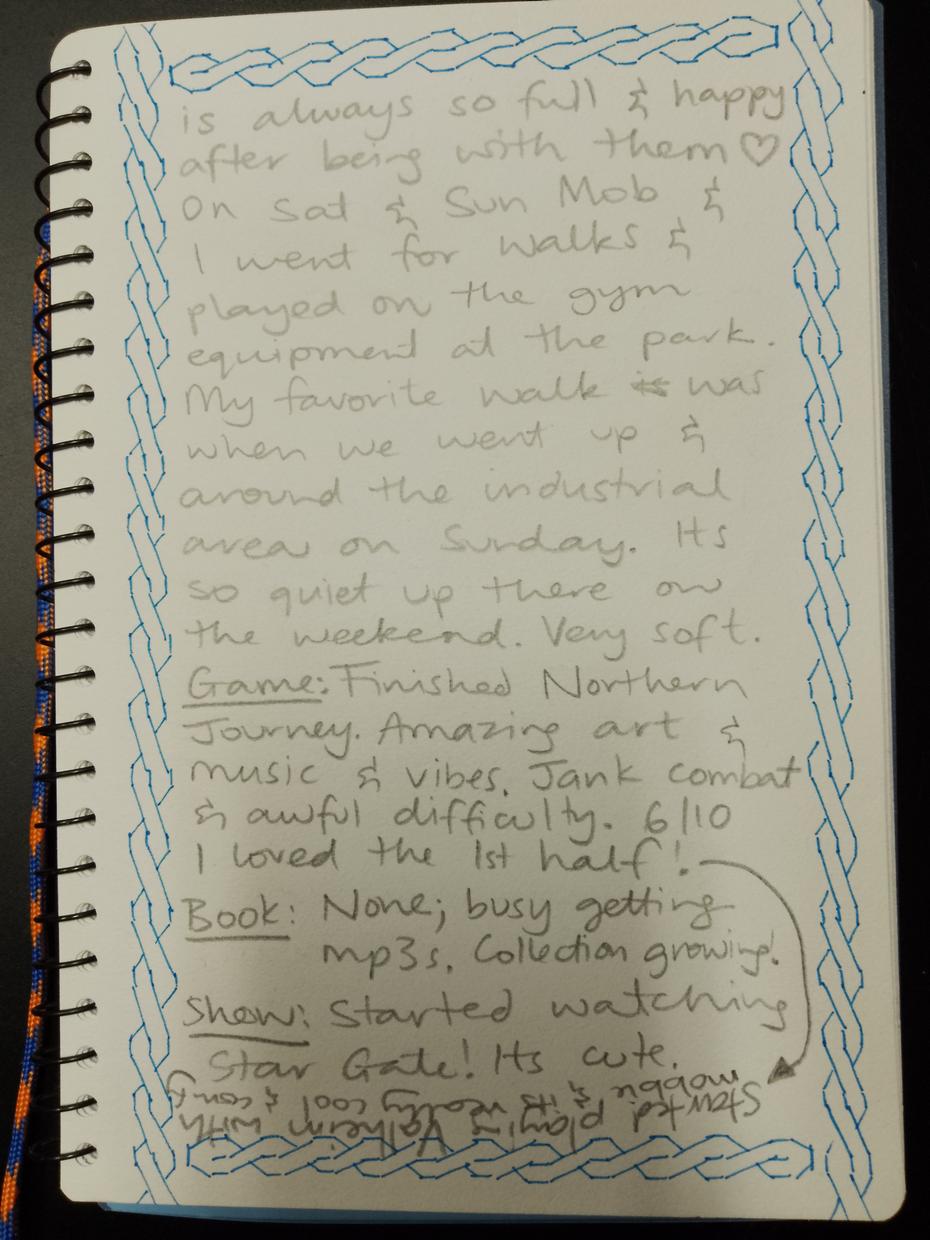 is always so full & happy
after being with them ♡
On Sat & Sun Mob &
I went for walks &
played on the gym
equipment at the park.
My favorite walk ~~is~~ was
when we went up &
around the industrial
area on Sunday. Its
so quiet up there on
the weekend. Very soft.
Game: Finished Northern
Journey. Amazing art &
music & vibes. Jank combat
& awful difficulty. 6/10
I loved the 1st half!
Book: None; busy getting
mp3s. Collection growing!
Show: Started watching
Star Gate! Its cute.
Started playing Valheim with
mobbie & its really cool & comfy